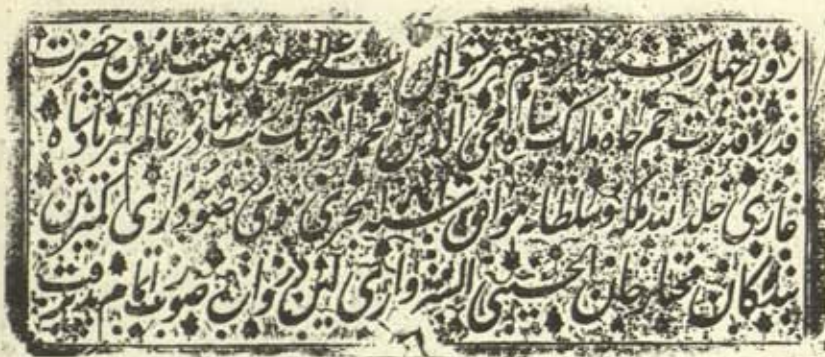 روز چهارشنبه پانزدهم شهر شوال سنه جلوس میمنت مانوس حضرت
قدر قدرت جم جاه ملایک سپاه محی الدین محمد اورنگ زیب بهادر عالمگیر پادشاه
غازی خلد الله ملکه و سلطانه موافق سنه هجری نبوی صوبه داری کمترین
بندگان مختار خان الحسینی السبزواری این دروازه صورت اتمام پذیرفت